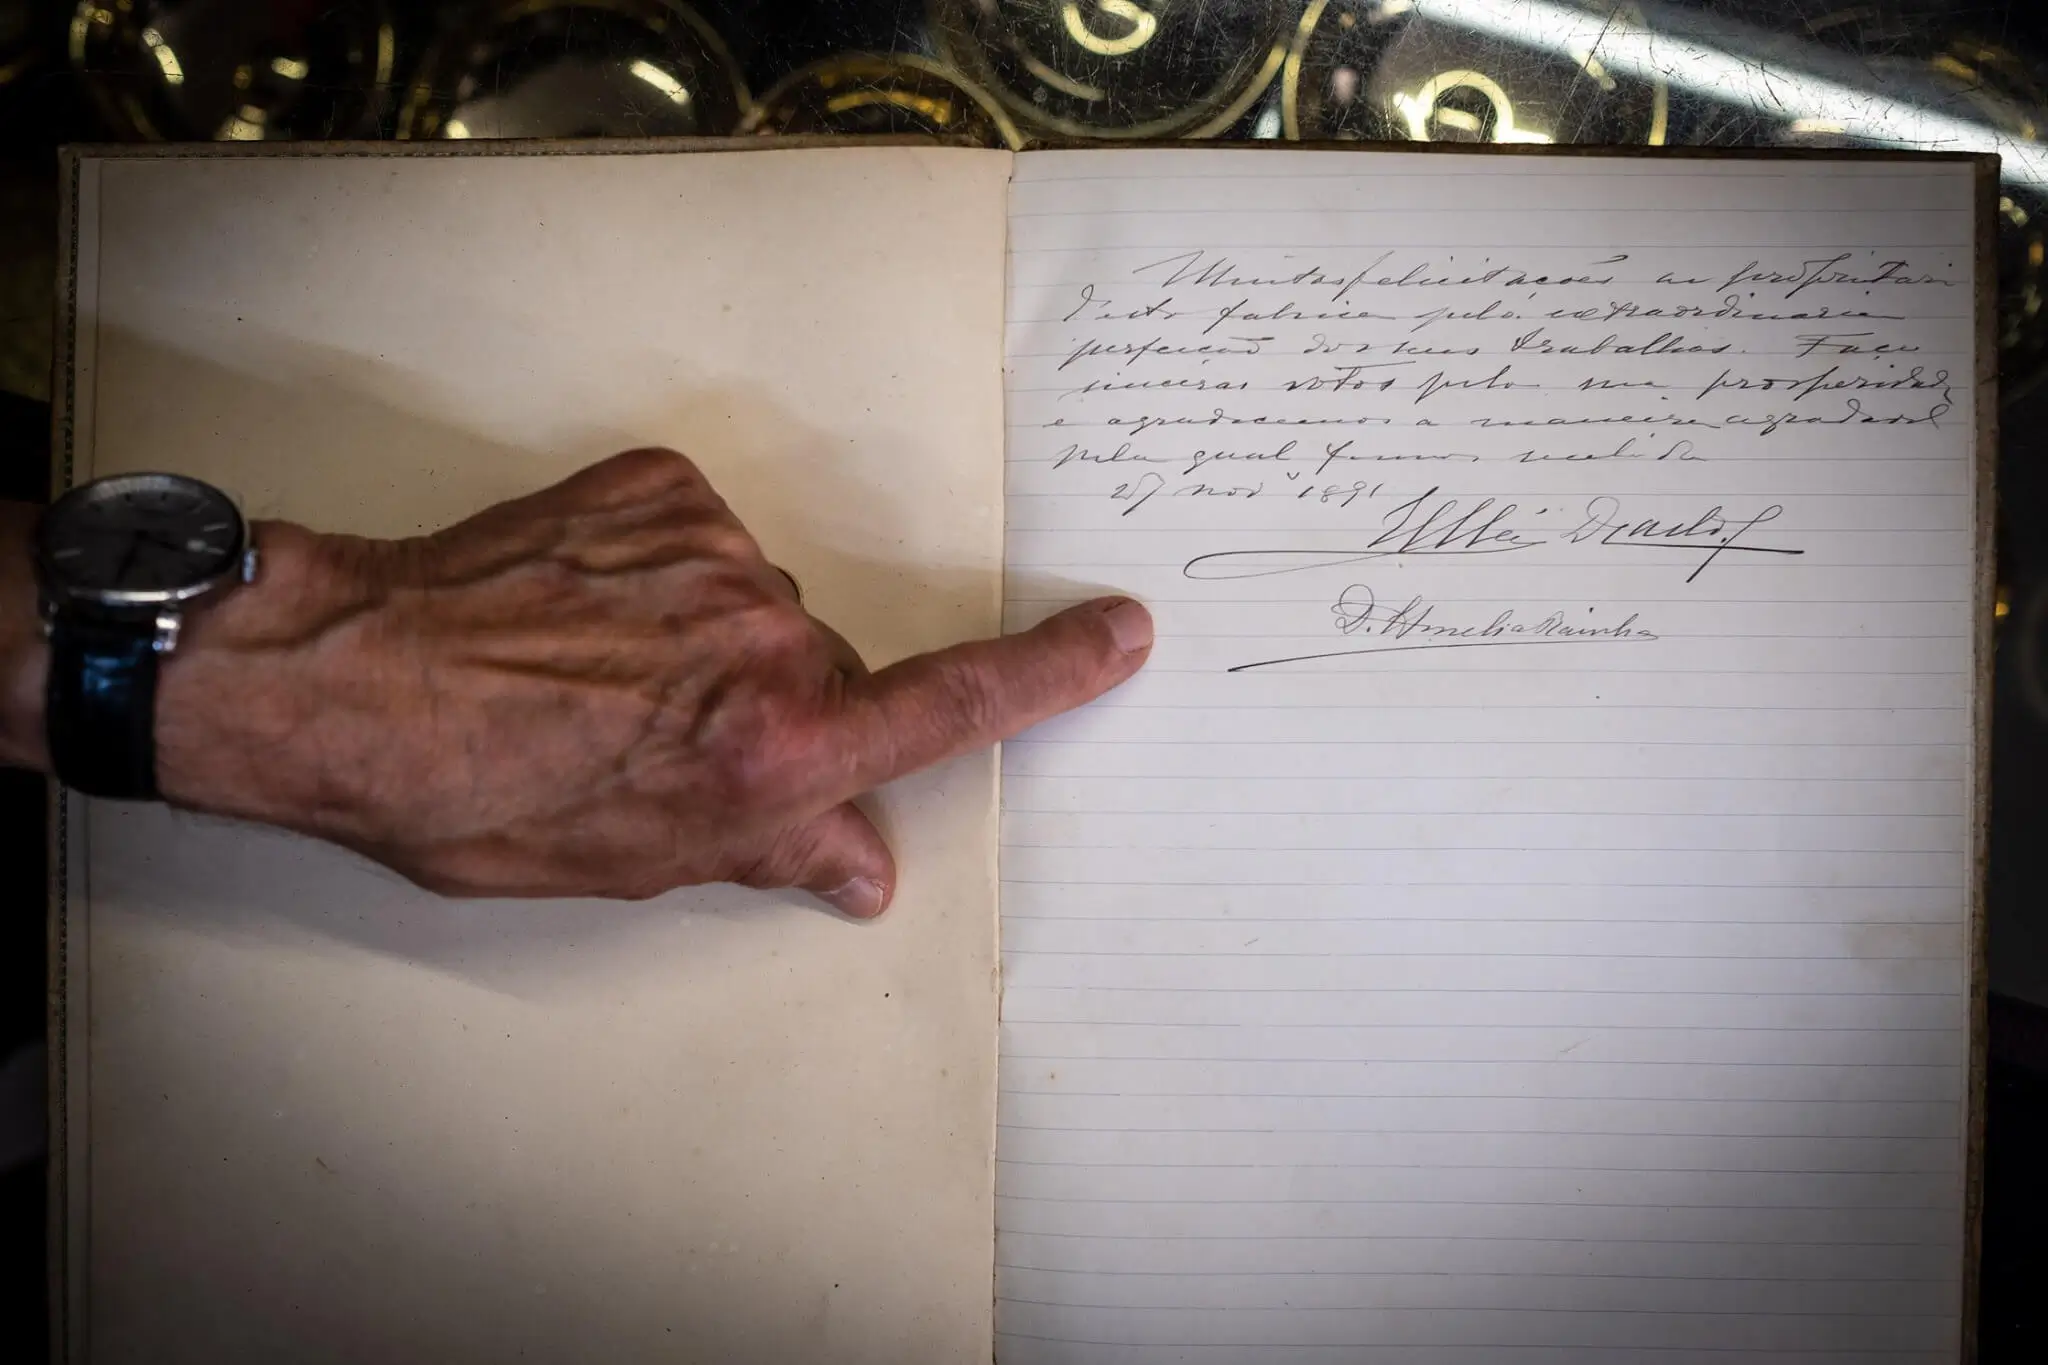 Muitas felicitações ao proprietari
d'esta fabrica pela extraordinaria
perfeição dos seus trabalhos. Faço
sinceros votos pela sua prosperidade
e agradecemos a maneira agradavel
pela qual fomos recebidos
27 nov 1891
D. Amelia Rainha